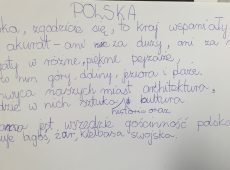 POLSKA
ka, zgodzicie się, to kraj wspaniały
akurat - ani za duży, ani za m
gaty w różne, piękne pejzaże,
to nim góry, doliny, jeziora i plaże.
hwyca naszych miast architektura,
dzie w nich sztuka, kultura
historia oraz
jest wszędzie gościnność polska
bigos, żur, kiełbasa swojska.